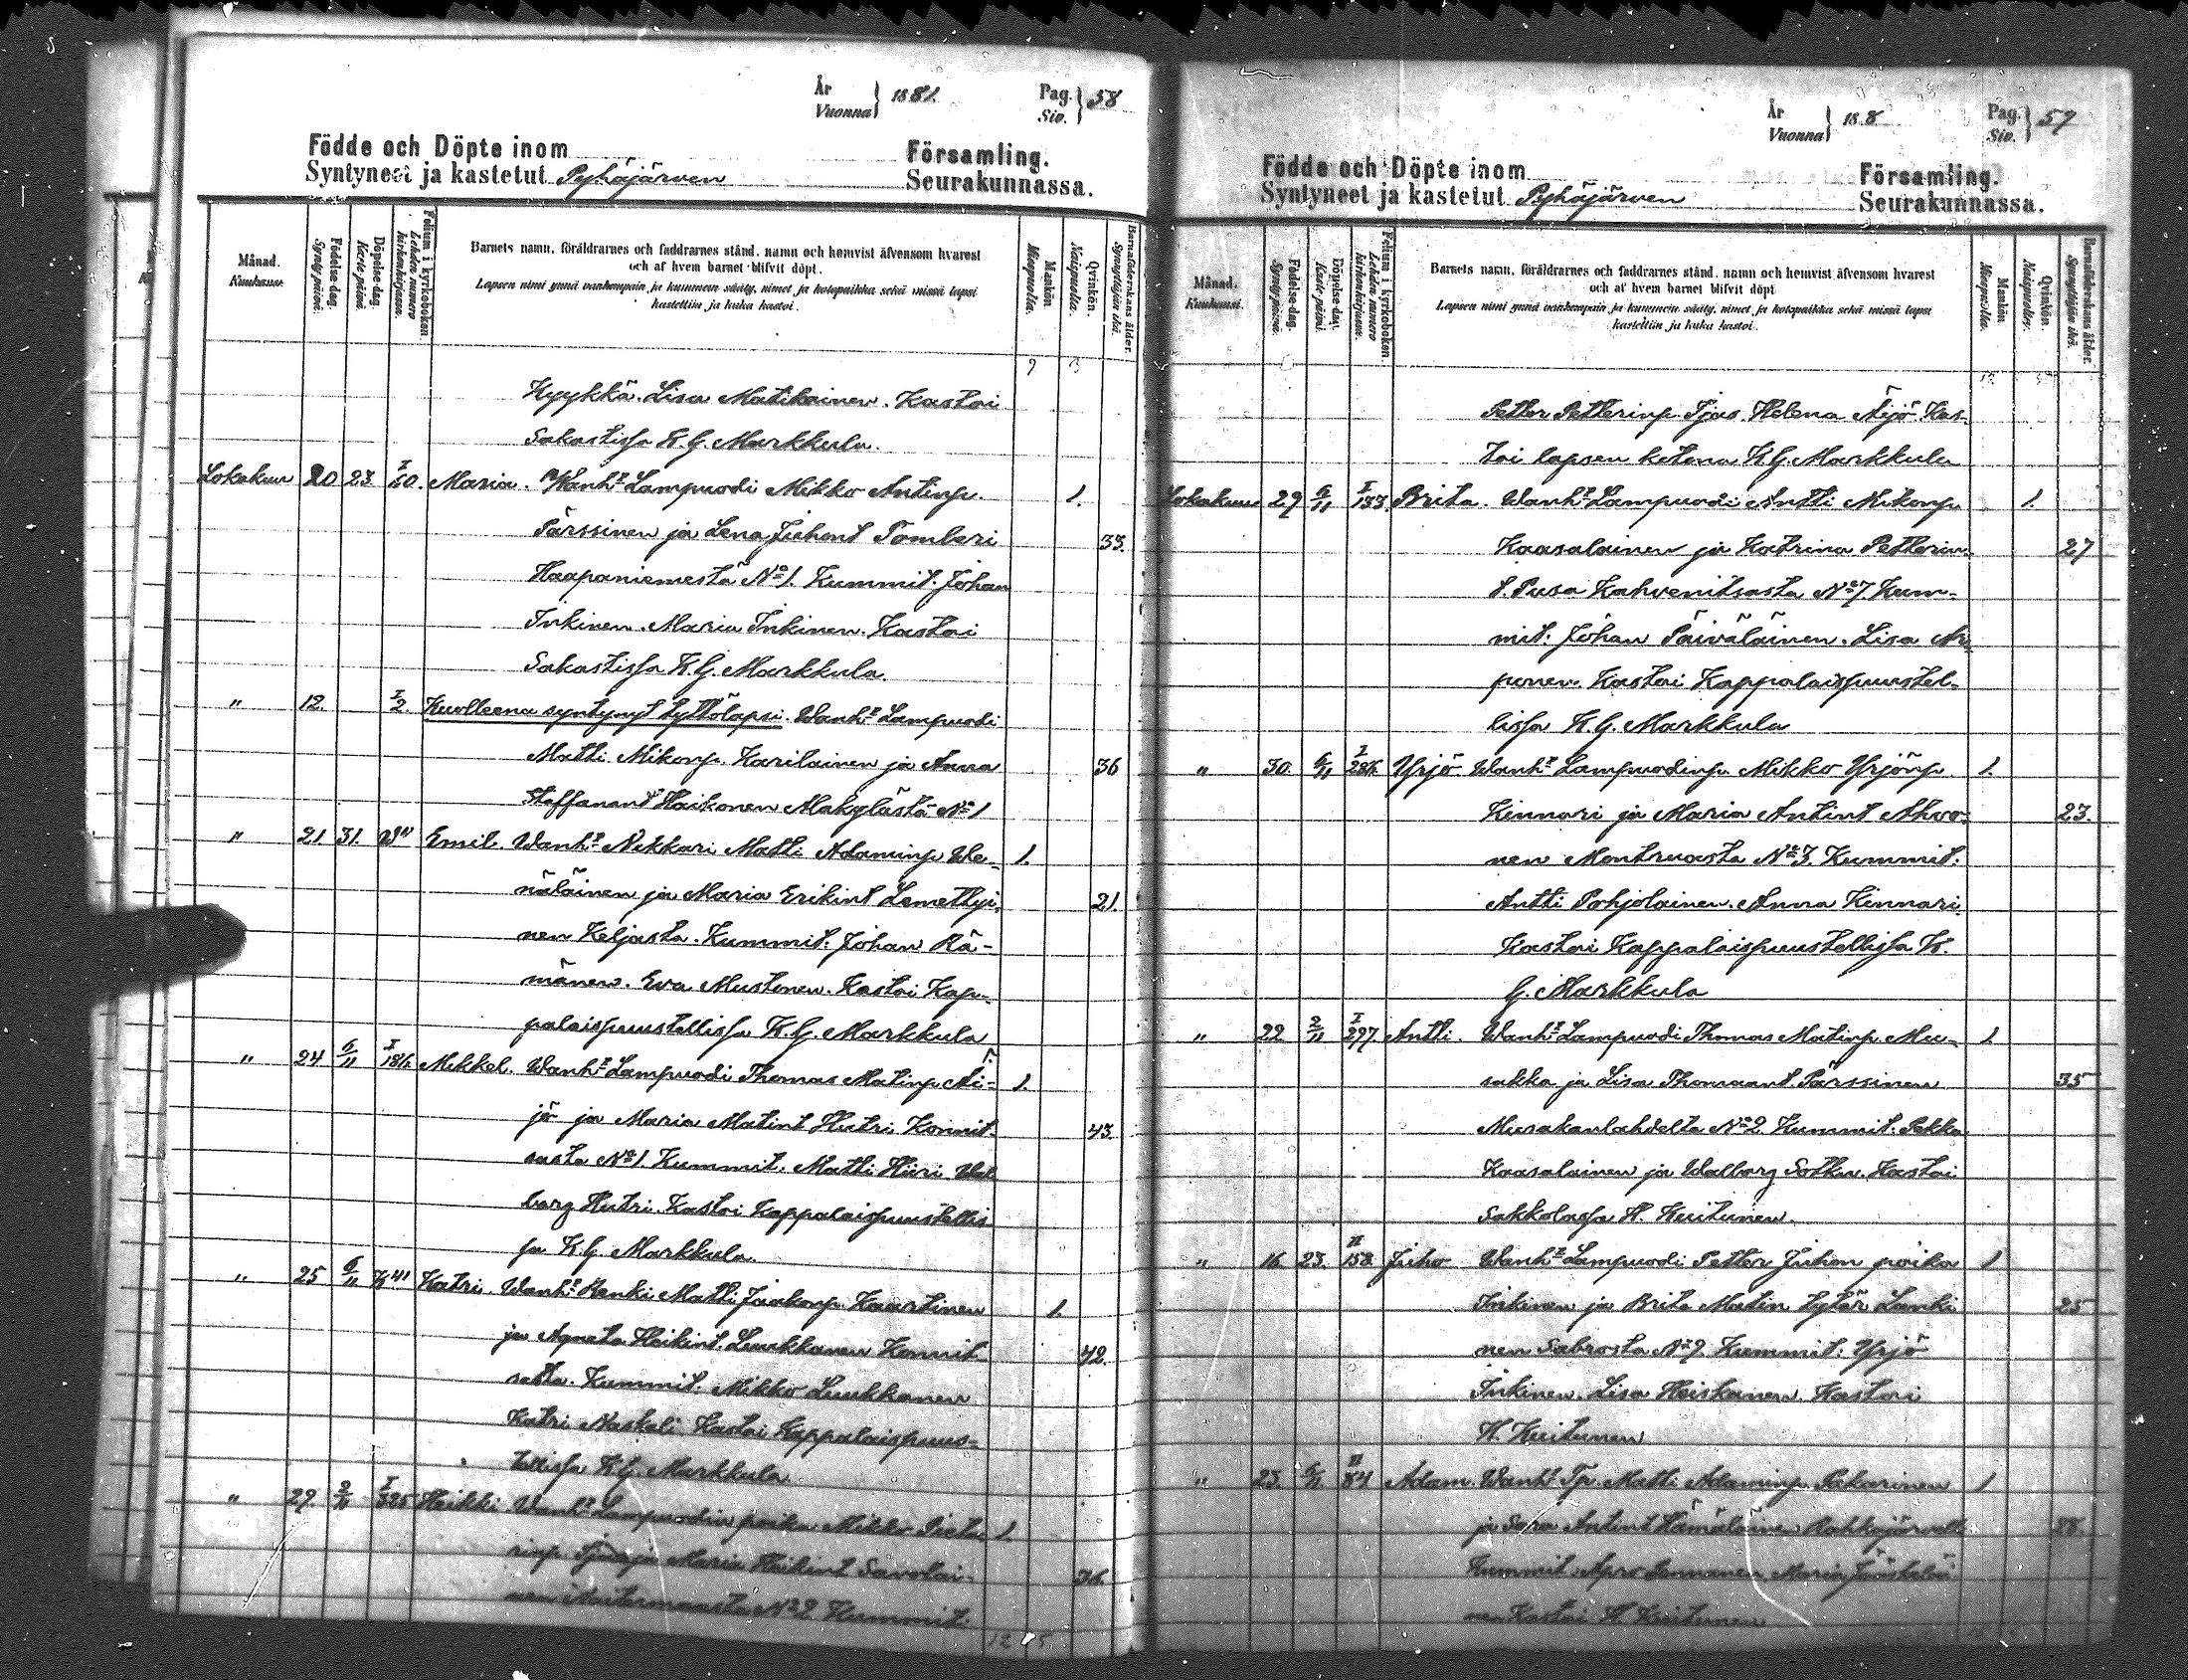 År
Vuonna } 1881.
Pag.
Siv. } 58
Födde och Döpte inom
Församling.
Syntyneet ja kastetut Pyhäjärven
Seurakunnassa.
Månad.
Kuukausi.
Födelse-dag.
Syntypäivä.
Döpelse-dag.
Kaste-päivä.
Folium i kyrkoboken.
Lehden numero kirkonkirjassa.
Barnets namn, föräldrarnes och faddrarnes stånd, namn och hemvist äfvensom hvarest
och af hvem barnet blifvit döpt.
Lapsen nimi ynnä vanhempain ja kummein sääty, nimet ja kotopaikka sekä missä lapsi
kastettiin ja kuka kastoi.
Mankön.
Miespuolia.
Qvinkön.
Naispuolia.
Barnaföderskans ålder.
Synnyttäjän ikä.
Hyykkä. Lisa Matikainen. Kastoi
Sakastissa K. G. Markkula.
Lokakuu 20 23 I/50. Maria. Wanht Lampuodi Mikko Antinp. 1.
Pärssinen ja Lena Juhont Tomberi 33.
Haapaniemestä No 1. Kummit. Johan
Inkinen. Maria Inkinen. Kastoi
Sakastissa K. G. Markkula.
" 12. I/2. Kuolleena syntynyt tyttölapsi. Wanht Lampuodi
Matti Mikonp. Karilainen ja Anna 36
Staffanant Haikonen Alakylästä No 1
" 21 31. Emil. Wanht Nikkari Matti Adaminp We- 1.
näläinen ja Maria Erikint Lemettyi- 21.
nen Keljasta. Kummit: Johan Rä-
mänen. Eva Mustonen. Kastoi Kap-
palaispuustellissa K. G. Markkula
" 24 6/11 I/186 Mikkel. Wanht Lampuodi Thomas Matinp. Äi- 1.
jö ja Maria Matint Hutri Konnit- 43.
sasta No 1. Kummit. Matti Hiiri. Wal
borg Hutri. Kastoi Kappalaispuustellis
sa K. G. Markkula
" 25 6/11 K 41 Katri. Wanht Renki Matti Jaakonp. Kaartinen 1.
ja Agneta Heikint. Luukkanen Konnit 42.
sasta. Kummit. Mikko Luukkanen
Katri Naskali Kastoi Kappalaispuus-
tellissa K. G. Markkula
" 29. 2/11 I/325 Heikki Wanht Lampuodin poika Mikko Pieta- 1.
rinp. Ijas ja Maria Heikint Savolai- 36.
nen Noitermaasta No 2. Kummit.
År
Vuonna } 188
Pag.
Siv. } 59
Födde och Döpte inom
Församling.
Syntyneet ja kastetut Pyhäjärven
Seurakunnassa.
Månad.
Kuukausi.
Födelse-dag.
Syntypäivä.
Döpelse-dag.
Kaste-päivä.
Folium i kyrkoboken.
Lehden numero kirkonkirjassa.
Barnets namn, föräldrarnes och faddrarnes stånd, namn och hemvist äfvensom hvarest
och af hvem barnet blifvit döpt
Lapsen nimi ynnä vanhempain ja kummein sääty, nimet ja kotopaikka sekä missä lapsi
kastettiin ja kuka kastoi.
Mankön.
Miespuolia.
Qvinkön.
Naispuolia.
Barnaföderskans ålder.
Synnyttäjän ikä.
Petter Petterinp. Ijas. Helena Äijö. Kas-
toi lapsen kotona K. G. Markkula
Lokakuu 29 6/11 I/133. Brita. Wanht Lampuodi Antti Mikonp. 1.
Kaasalainen ja Katrina Petterin- 27
t. Pusa Kahvenitsasta No 7. Kum-
mit: Johan Päiväläinen. Lisa
punen. Kastoi Kappalaispuustel-
lissa K. G. Markkula
" 30. 6/11 I/286 Yrjö Wanht Lampuodinp. Mikko Yrjönp. 1.
Kinnari ja Maria Antint Ahvo- 23.
nen Montruasta No 3. Kummit.
Antti Pohjolainen. Anna Kinnari
Kastoi Kappalaispuustellissa K.
G. Markkula
" 22 2/11 I/297. Antti. Wanht Lampuodi Thomas Matinp. Mu- 1.
sakka ja Lisa Thomaant. Pärssinen 35
Musakanlahdelta No 2. Kummit: Pekka
Kaasalainen ja Walborg Sotku. Kastoi
Sakkolassa H. Kuitunen.
" 16 23. II/153. Juho Wanht Lampuodi Petter Juhon poika 1
Inkinen ja Brita Matin tytär Lanki 25
nen Sabrosta No 9. Kummit: Yrjö
Inkinen. Lisa Heiskanen. Kastoi
H. Kuitunen
" 23. 6/11 II/84 Adam. Wanht Tp. Matti Adaminp. Pakarinen 1
ja Sara Antint Hämäläinen Rahkajärvelt 38.
Kummit. Apro Jennanen Maria Jääskeläi
nen Kastoi H. Kuitunen